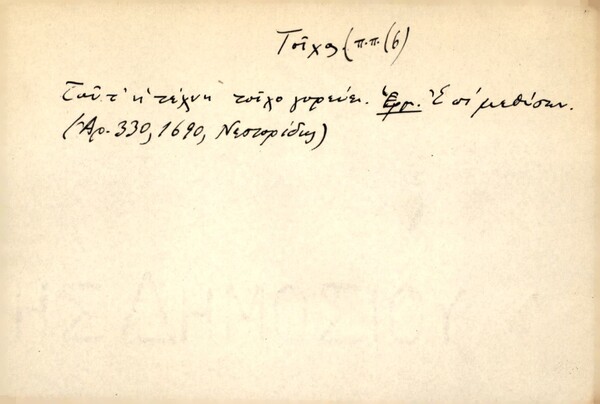 Τοῖχος (π.π. (6)
Ταῦτ' ἡ τέχνη τοῖχο γυρεύει. Ἑρμ. Ἐπὶ μεθύσων.
(Ἀρ. 330, 1690, Νεστορίδης)